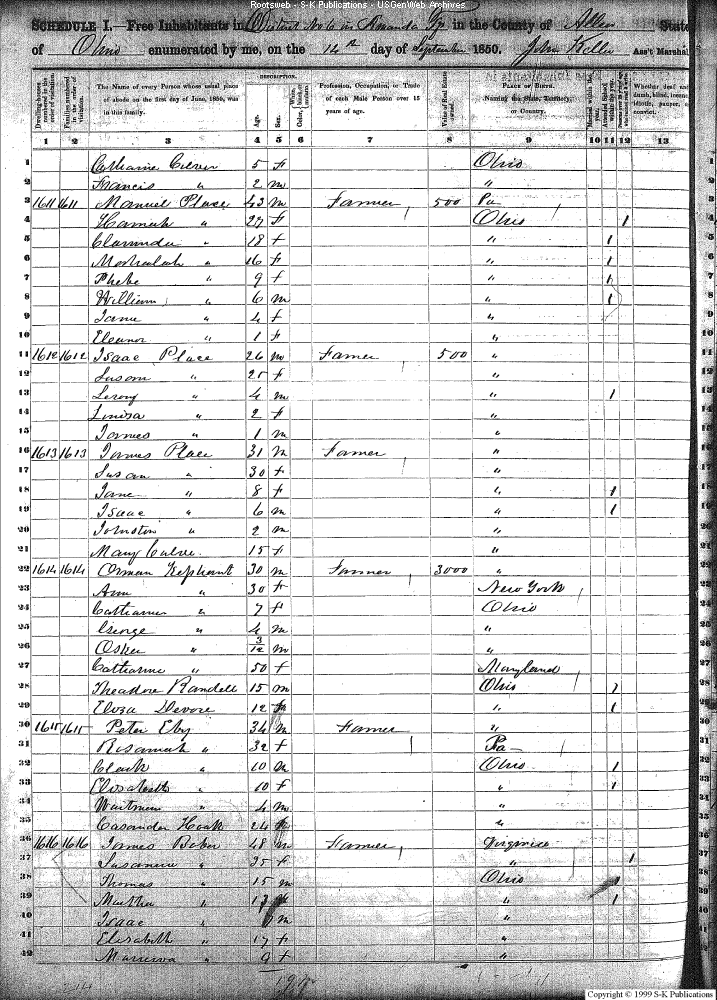 Rootsweb - S-K Publications - USGenWeb Archives
SCHEDULE I.—Free Inhabitants in District No 6 in Amanda Tp in the County of Allen State
of Ohio enumerated by me, on the 14th day of September 1850. John Ass't Marshal
DESCRIPTION.
Dwelling-houses numbered in the order of visitation. Families numbered in the order of visitation. The Name of every Person whose usual place of abode on the first day of June, 1850, was in this family. Age. Sex. Color, White, black, or mulatto Profession, Occupation, or Trade of each Male Person over 15 years of age. Value of Real Estate owned. PLACE OF BIRTH. Naming the State, Territory, or Country. Married within the year. Attended School within the year. Whether deaf and dumb, blind, insane, idiotic, pauper, or convict.
1 2 3 4 5 6 7 8 9 10 11 12 13
1 Catharine Culver 5 f Ohio 1
2 Francis " 2 m " 2
3 1611 1611 Manuel Place 43 m Farmer 500 Pa 3
4 Hannah " 27 f Ohio 1 4
5 Clarinda " 18 f " 1 5
6 " 16 f " 1 6
7 Phebe " 9 f " 1 7
8 William " 6 m " 1 8
9 Jane " 4 f " 9
10 Eleanor " 1 f " 10
11 1612 1612 Isaac Place 26 m Farmer 500 " 11
12 Susan " 25 f " 12
13 Leroy " 4 m " 1 13
14 Louisa " 2 f " 14
15 James " 1 m " 15
16 1613 1613 James Place 31 m Farmer " 16
17 Susan " 30 f " 17
18 Jane " 8 f " 1 18
19 Isaac " 6 m " 1 19
20 Johnston " 2 m " 20
21 Mary Culver 15 f " 21
22 1614 1614 Orman Kephart 30 m Farmer 3000 " 22
23 Ann " 30 f New York 23
24 Catharine " 7 f Ohio 24
25 George " 4 m " 25
26 " 3/12 m " 26
27 Catharine " 50 f Maryland 27
28 Theadore Randell 15 m Ohio 1 28
29 Eliza Devore 12 f " 1 29
30 1615 1615 Peter Eby 34 m Farmer " 30
31 Rosannah " 32 f Pa 31
32 Clark " 10 m Ohio 1 32
33 Elisabeth " 10 f " 1 33
34 " 4 m " 34
35 Casander Hook 24 " 35
36 1616 1616 James Baber 48 m Farmer Virginia 36
37 Susannah " 35 f " 1 37
38 Thomas " 15 m Ohio 1 38
39 Martha " " 1 39
40 Isaac " m " 40
41 Elisabeth " 17 f " 41
42 Manerva " 9 f " 42
Copyright © 1999 S-K Publications